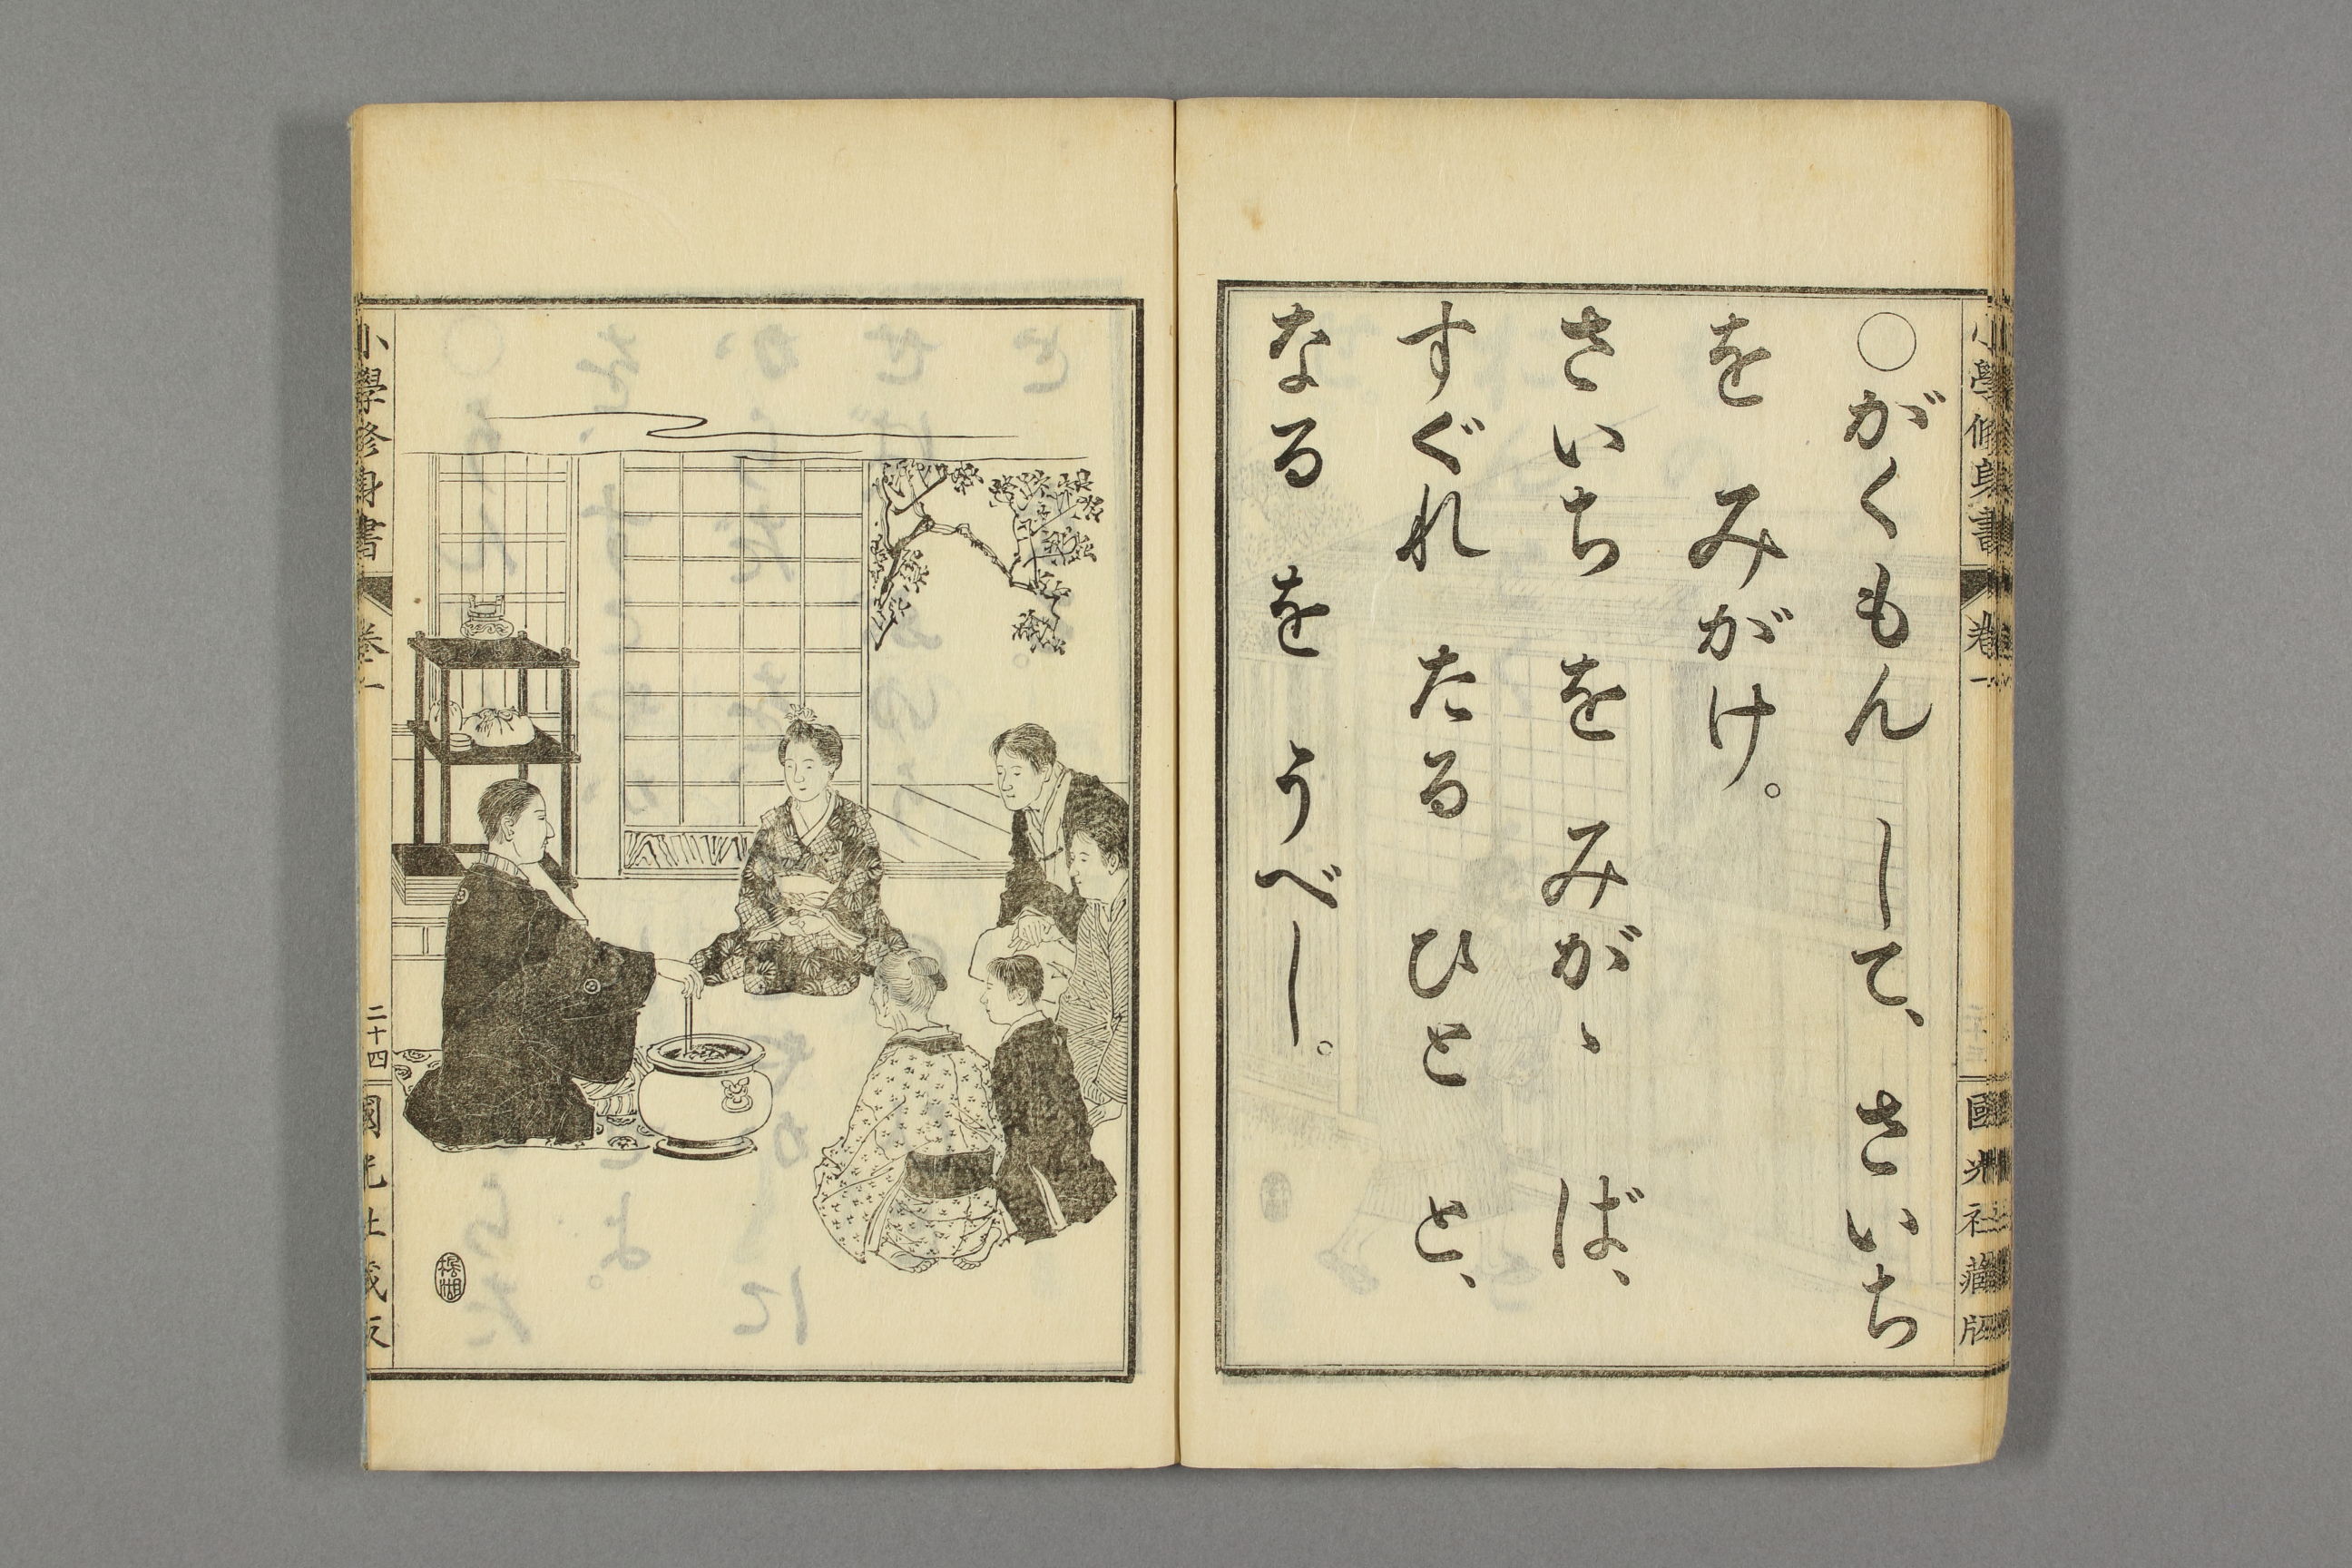 ○がくもん して、さいち
を みがけ。
さいち を みがゝ ば、
すぐれ たる ひと と、
なる を うべし。
小學修身書 卷一
國光社藏版
小學修身書 卷一
二十四
國光社藏版